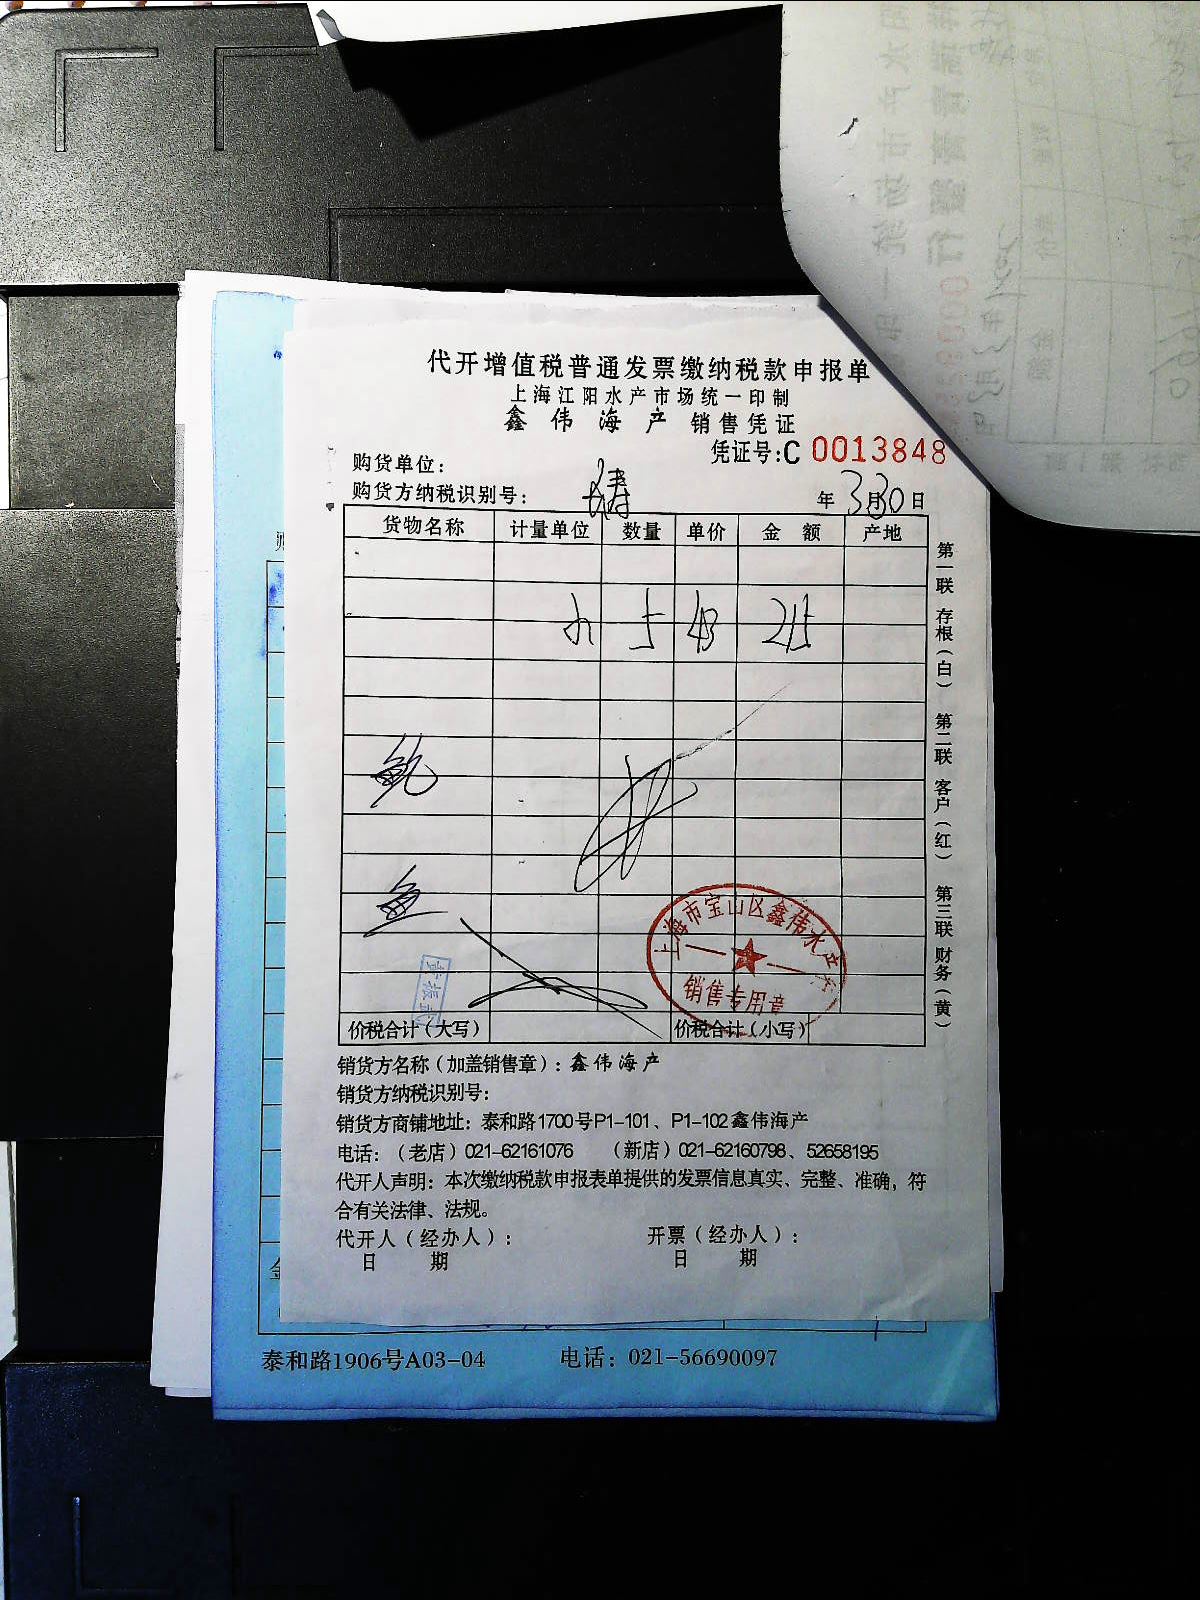 代开增值税普通发票缴纳税款申报单
上海江阳水产市场统一印制
鑫伟海产 销售凭证
凭证号:C 0013848
购货单位:
购货方纳税识别号:
年 3月30日
货物名称 计量单位 数量 单价 金额 产地
43
鲍
鱼
上海市宝山区鑫伟水产行
销售专用章
价税合计(大写) 价税合计(小写)
第一联 存根(白) 第二联 客户(红) 第三联 财务(黄)
销货方名称(加盖销售章):鑫伟海产
销货方纳税识别号:
销货方商铺地址:泰和路1700号P1-101、P1-102鑫伟海产
电话:(老店)021-62161076 (新店)021-62160798、52658195
代开人声明:本次缴纳税款申报表单提供的发票信息真实、完整、准确,符
合有关法律、法规。
代开人(经办人): 开票(经办人):
日 期 日 期
泰和路1906号A03-04 电话:021-56690097